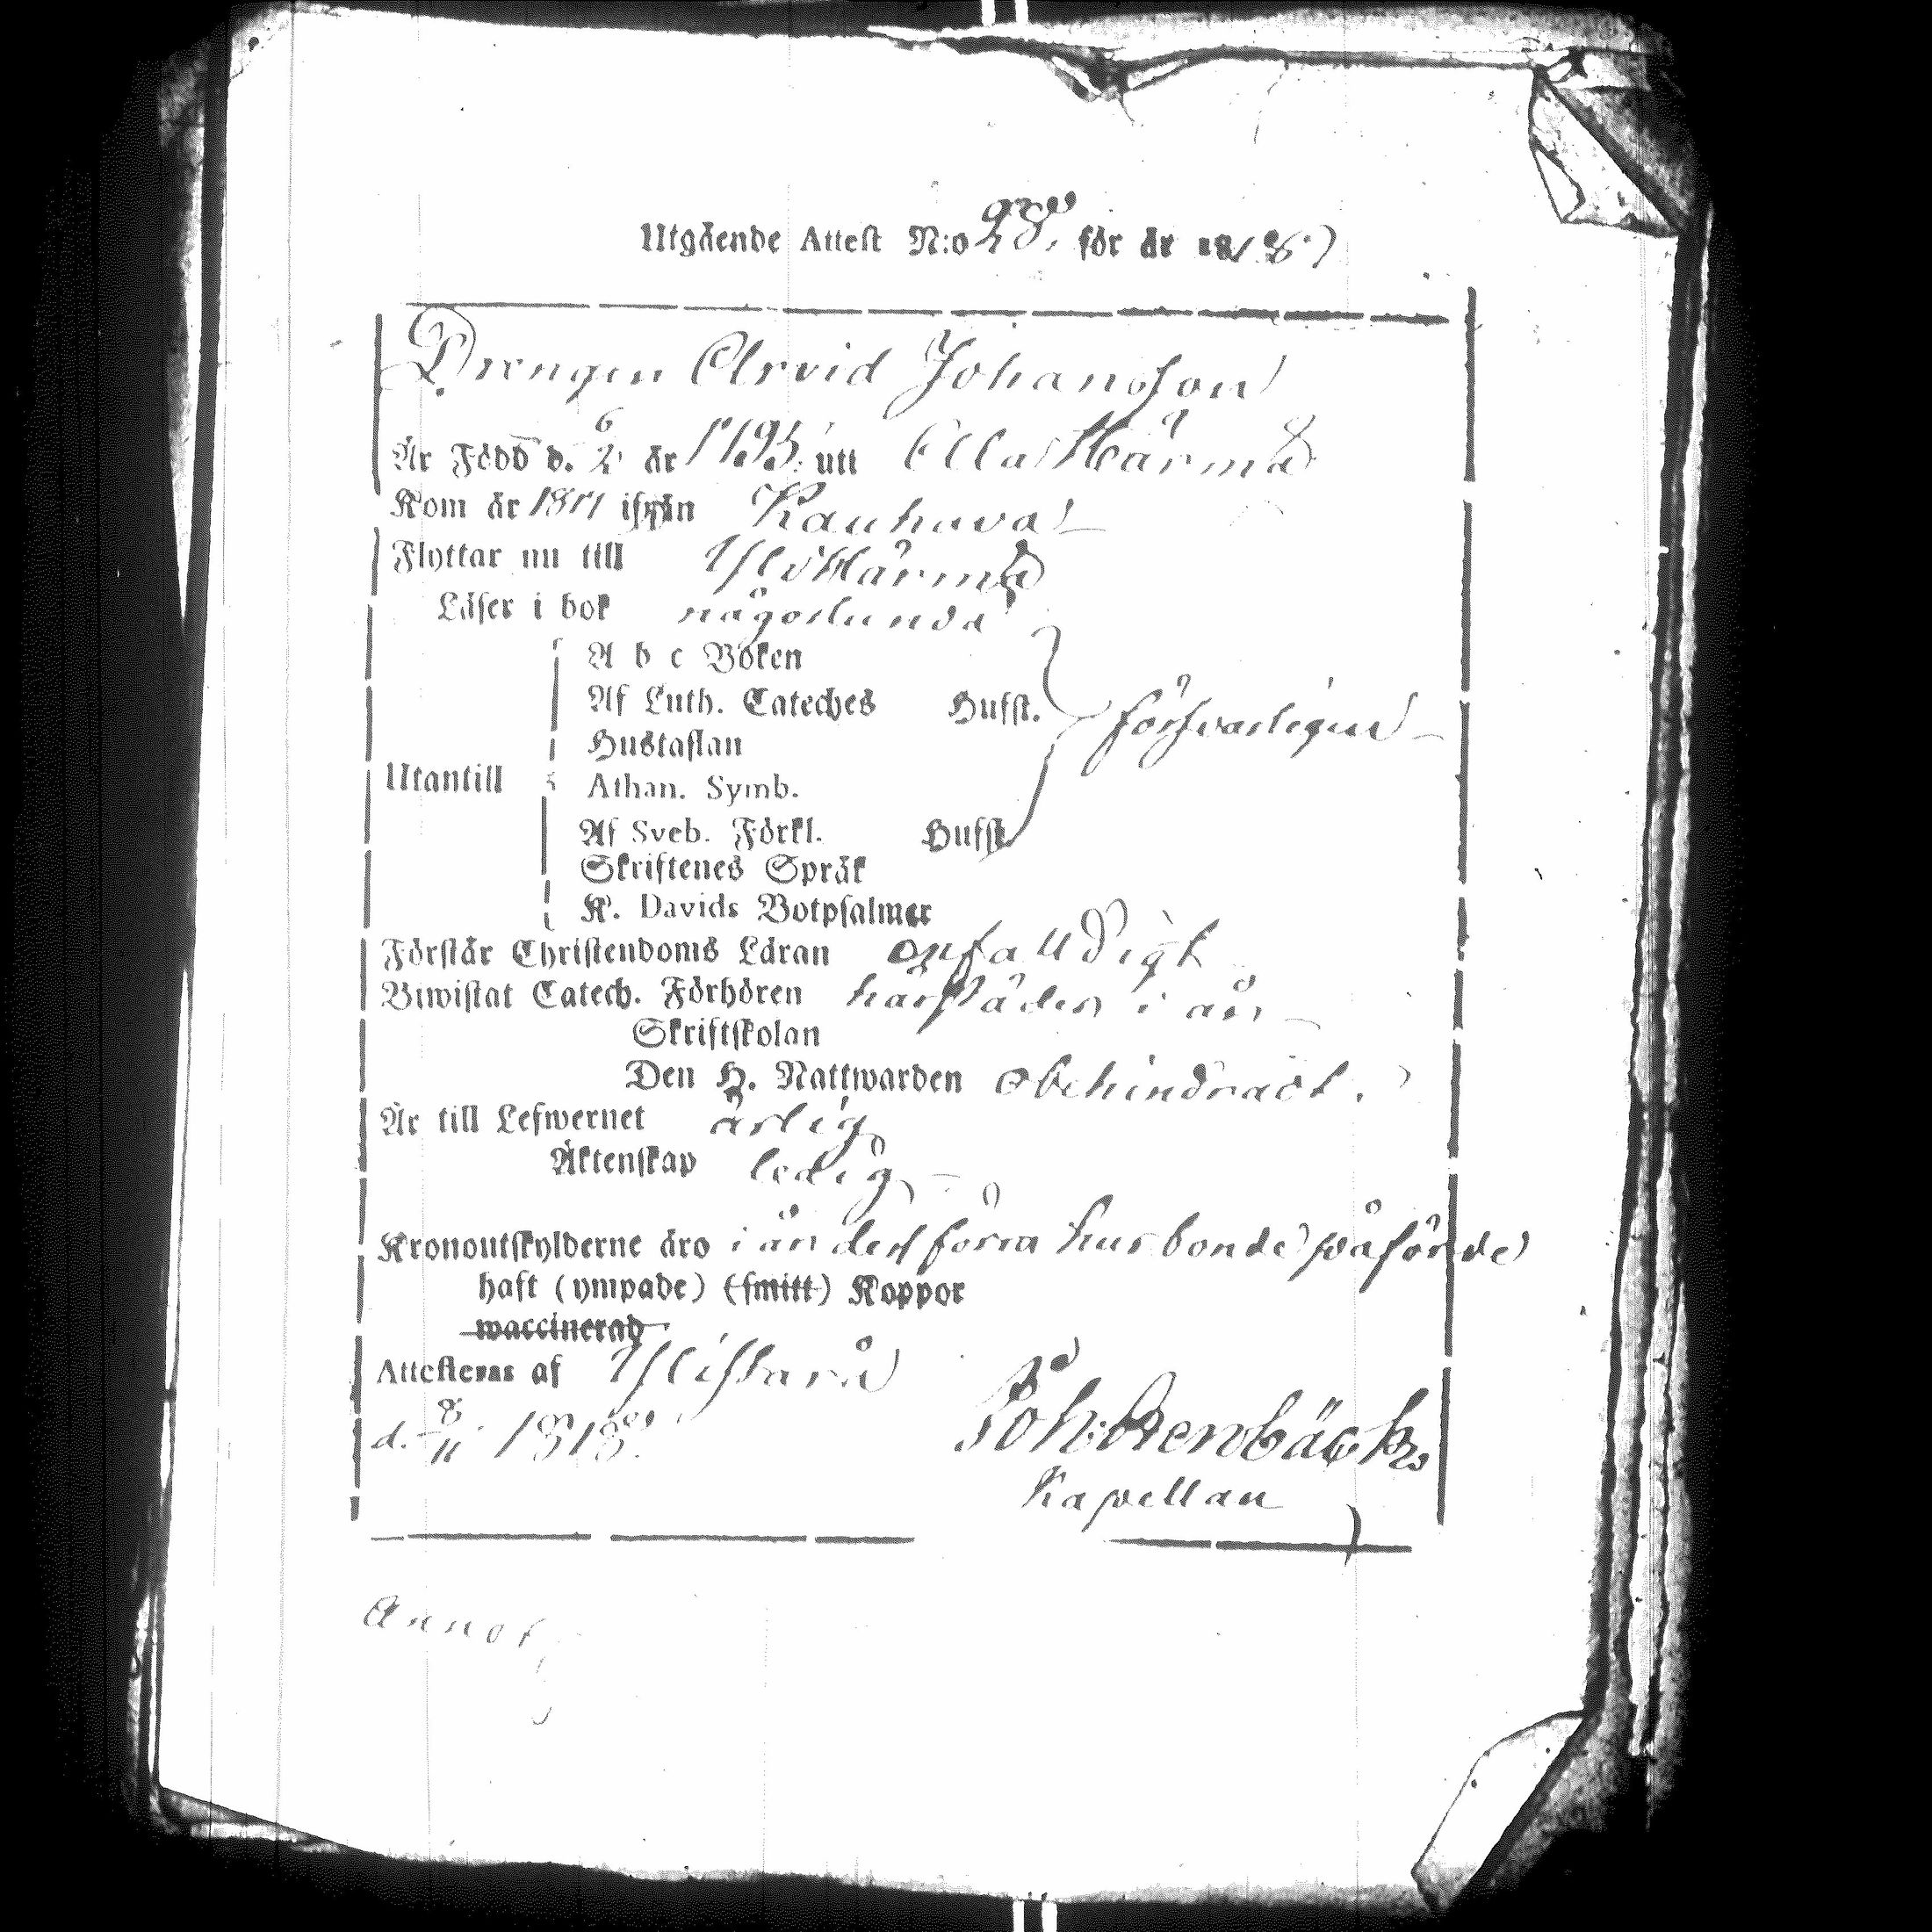 Utgående Attest N:o 28. för år 1818
Drengen Arvid Johansson
Är Född d. 6/2 år 1795 utt Ylla Härmä
Kom år 1817 ifrån Kauhava
Flyttar nu till Yli Härmä
Läser i bok någorlunda
A b c Boken
Af Luth. Cateches Hufst. försvarligen
Hustaflan
Utantill
Athan. Symb.
Af Sveb. Förkl. Hufst.
Skriftenes Språk
K. Davids Botpsalmer
Förstår Christendoms Läran enfalldigt
Biwistat Catech. Förhören härstädes i år
Skriftskolan
Den H. Nattwarden obehindradt.
Är till Lefwernet ärlig
Äktenskap ledig
Kronoutskylderne äro i år des förra husbonde påförde
haft (ympade) (smitt) Koppor
waccinerad
Attesteras af Ylistaro
d. 8/11 1818.
Joh: Stenbäck
Kapellan
Annot